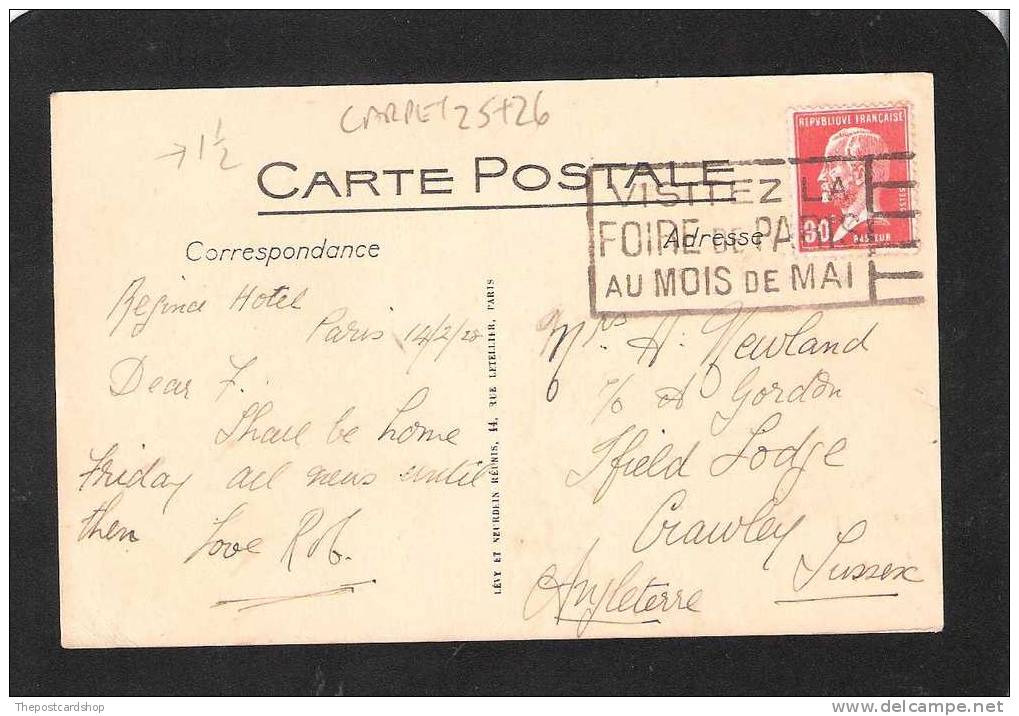 CARPET 25+26
→ 1 1/2
CARTE POSTALE
REPVBLIQUE FRANÇAISE
POSTES
90
PASTEUR
VISITEZ LA
FOIRE DE PARIS
AU MOIS DE MAI
Correspondance
Adresse
Regina Hotel
Paris 14/2/28
Dear F.
Shall be home
Friday all news until
then
Love Rob.
LÉVY ET NEURDEIN RÉUNIS, 44, RUE LETELLIER, PARIS
Mrs. H. Newland
c/o A Gordon
Ifield Lodge
Crawley
Sussex
Angleterre
Thepostcardshop
www.delcampe.net